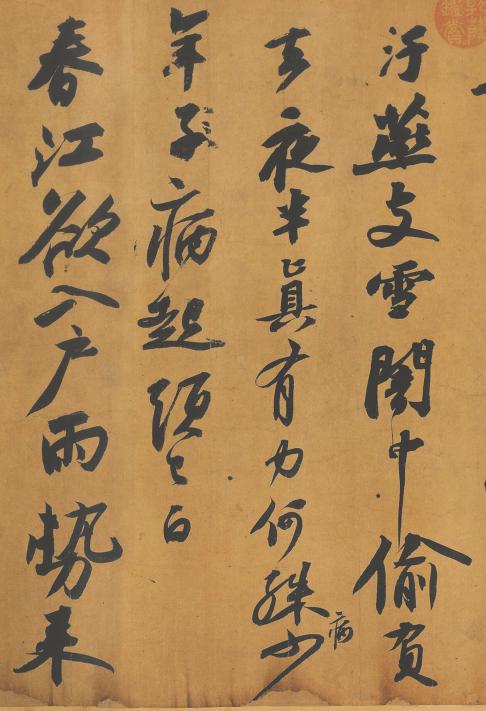 汙燕支雪闇中偷負
去夜半真有力何殊少
病
年子病起頭已白
春江欲入戶雨勢来